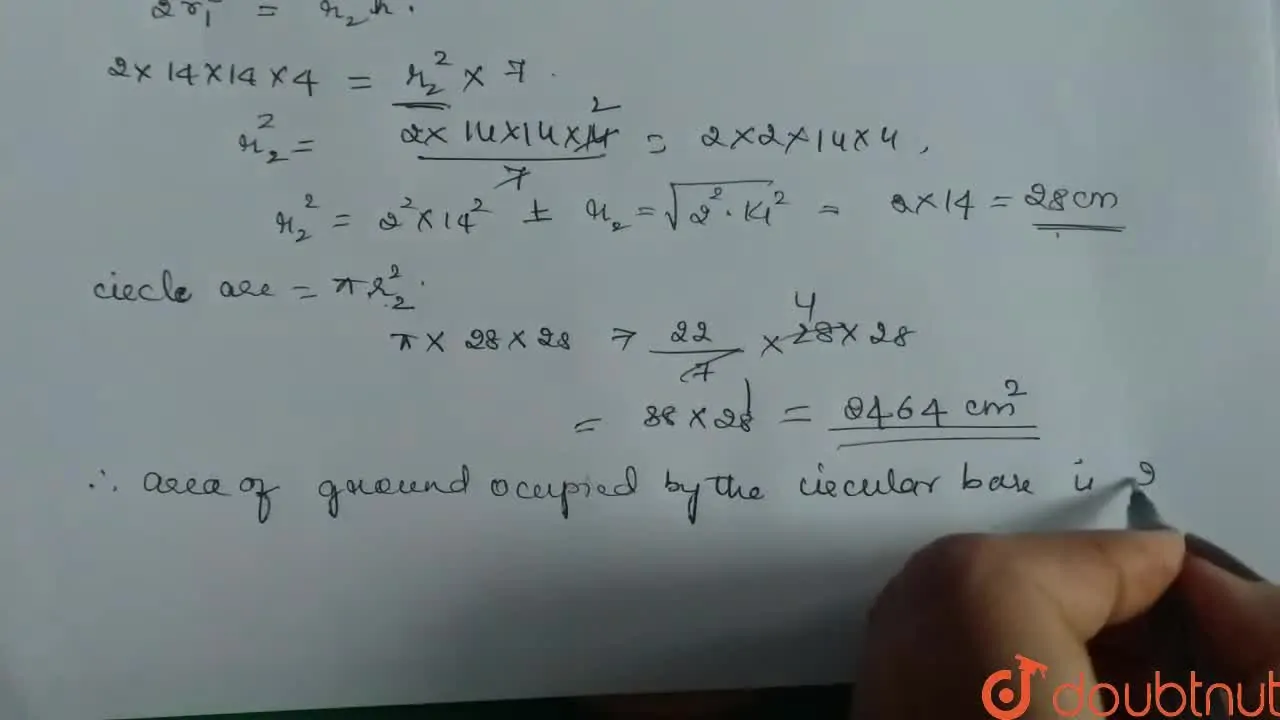 2r₁³ = r₂²h.
2×14×14×4 = r₂² × 7.
r₂² = 2×14×14×14 2 / 7 = 2×2×14×4,
r₂² = 2²×14² ± r₂ = √2².14² = 2×14 = 28cm
ciecle are = πr₂².
π× 28×28 ⇒ 22/7 × 28 4 × 28
= 88×28 = 2464 cm²
∴ area of ground occupied by the ciecular base is 2
doubtnut